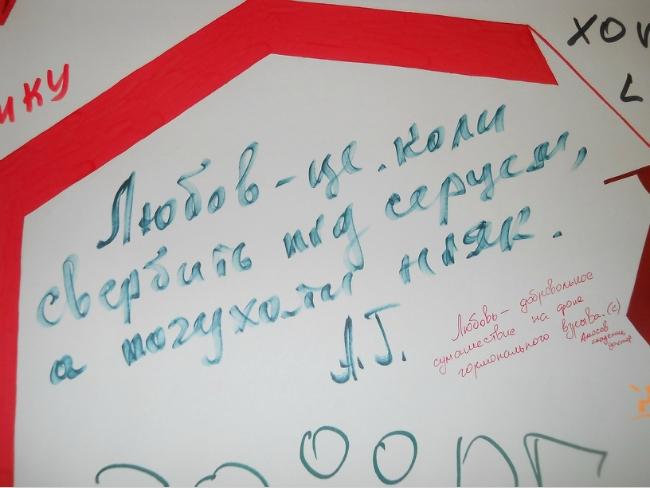 ику
Любов - це . коли
свербить під серцем,
а почухати ніяк.
А.Г.
Любовь - добровольное
сумашествие на фоне
гормонального взрыва. (с)
Амосов